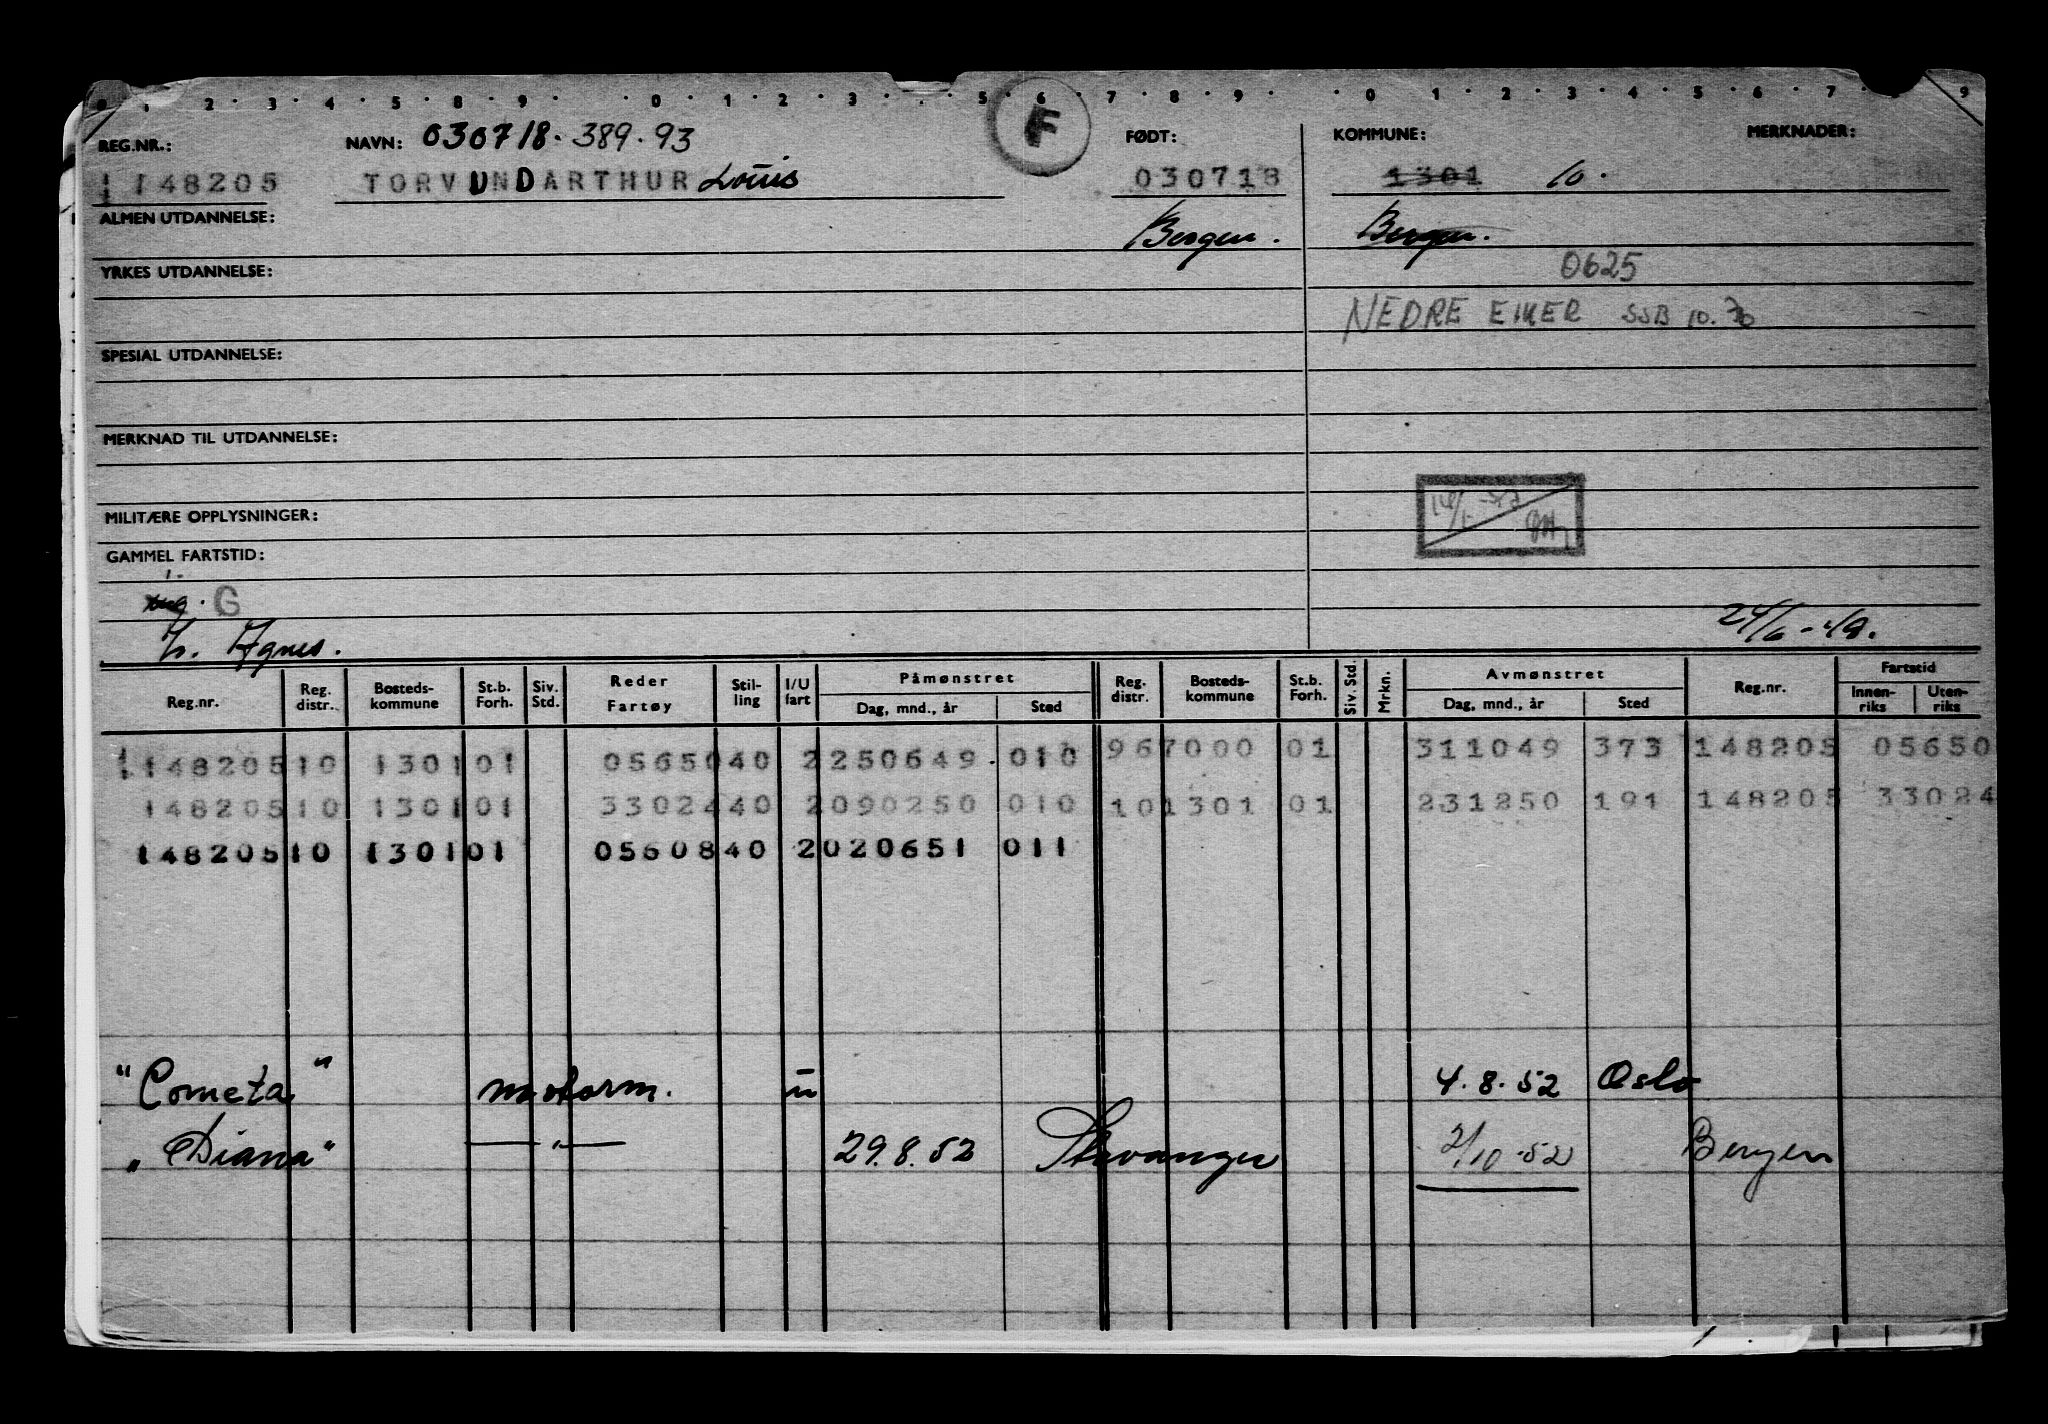 0 1 2 3 4 5 8 9 0 1 2 3 5 6 7 8 9 0 1 2 3 4 5 6 7 9
REG.NR.: NAVN: 030718. 389.93 F FØDT: KOMMUNE: MERKNADER:
148205 TORVUNDARTHUR Louis 030718 1301 10.
ALMEN UTDANNELSE: Bergen. Bergen.
YRKES UTDANNELSE: 0625
NEDRE EIKER SSB 10.70
SPESIAL UTDANNELSE:
MERKNAD TIL UTDANNELSE:
MILITÆRE OPPLYSNINGER:
GAMMEL FARTSTID:
ug. G
Agnes. 24/6-49.
Reg.nr. Reg. distr. Bosteds-kommune St.b. Forh. Siv. Std. Reder Fartøy Stil-ling I/U fart Påmønstret Dag, mnd., år Sted Reg. distr. Bosteds-kommune St.b. Forh. Siv. Std. Mrkn. Avmønstret Dag, mnd., år Sted Reg.nr. Fartstid Innen-riks Uten-riks
148205 10 1301 01 05650 40 2 250649. 010 96 7000 01 311049 373 148205 05650
148205 10 1301 01 33024 40 2 090250 010 10 1301 01 231250 191 148205 33024
148205 10 1301 01 05608 40 2 020651 011
"Cometa" motorm. u 4.8.52 Oslo
"Diana" — " — 29.8.52 Stavanger 2/10-52 Bergen